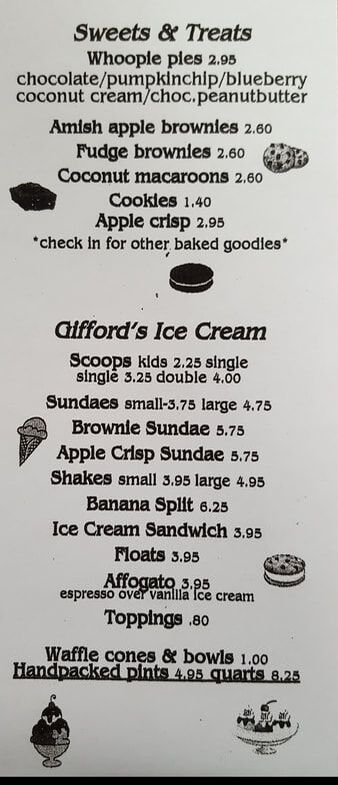 Sweets & Treats
Whoopie pies 2.95
chocolate/pumpkinchip/blueberry
coconut cream/choc.peanutbutter
Amish apple brownies 2.60
Fudge brownies 2.60
Coconut macaroons 2.60
Cookies 1.40
Apple crisp 2.95
*check in for other baked goodies*
Gifford's Ice Cream
Scoops kids 2.25 single
single 3.25 double 4.00
Sundaes small-3.75 large 4.75
Brownie Sundae 5.75
Apple Crisp Sundae 5.75
Shakes small 3.95 large 4.95
Banana Split 6.25
Ice Cream Sandwich 3.95
Floats 3.95
Affogato 3.95
espresso over vanilla ice cream
Toppings .80
Waffle cones & bowls 1.00
Handpacked pints 4.95 quarts 8.25